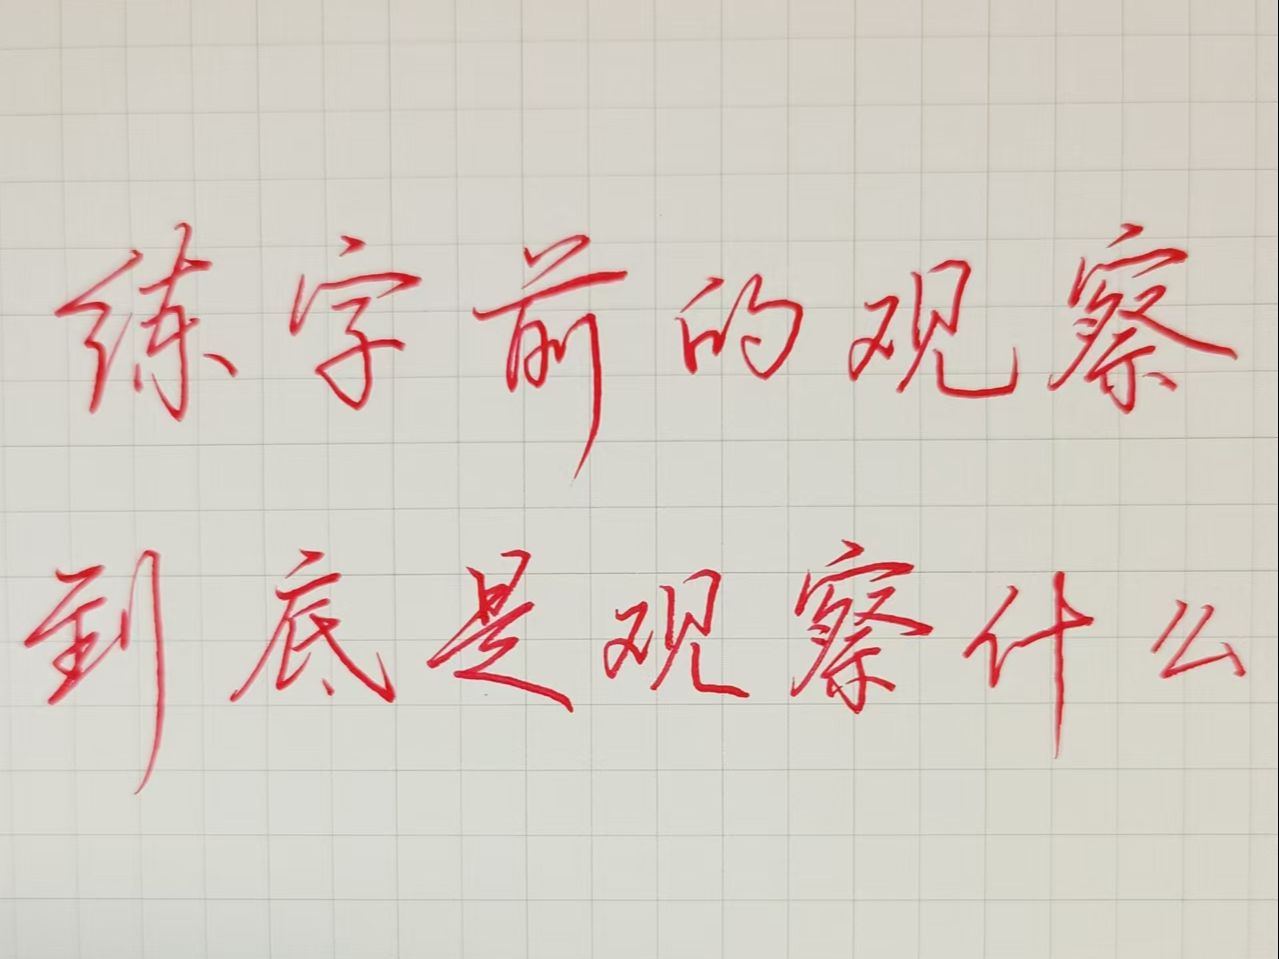 练字前的观察
到底是观察什么